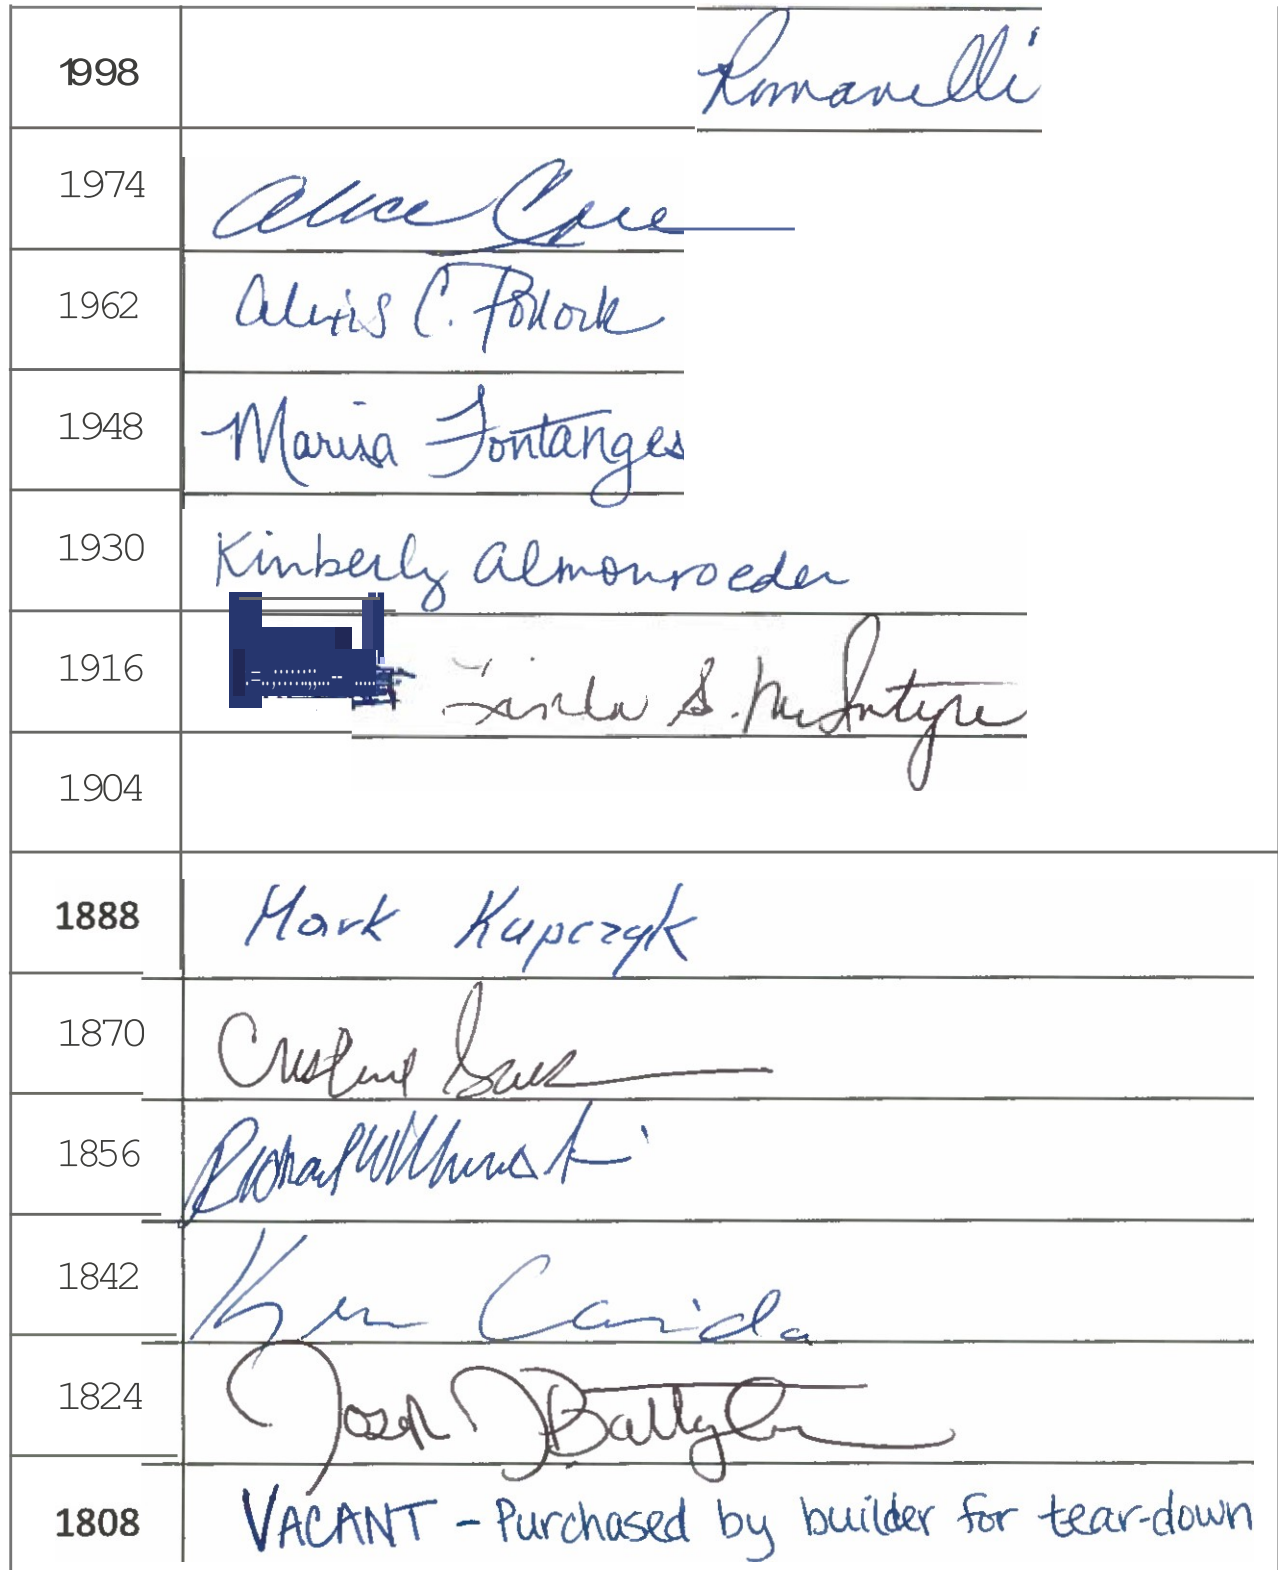 1998 Romanelli
1974 Alice
1962 Alexis C. Pollock
1948 Marisa Fontanges
1930 Kimberly Almonroeder
1916 Linda S. McIntyre
1904
1888 Mark Kupczyk
1870
1856 Richard
1842 Ken Carida
1824 Joseph J Battaglia
1808 VACANT - Purchased by builder for tear-down